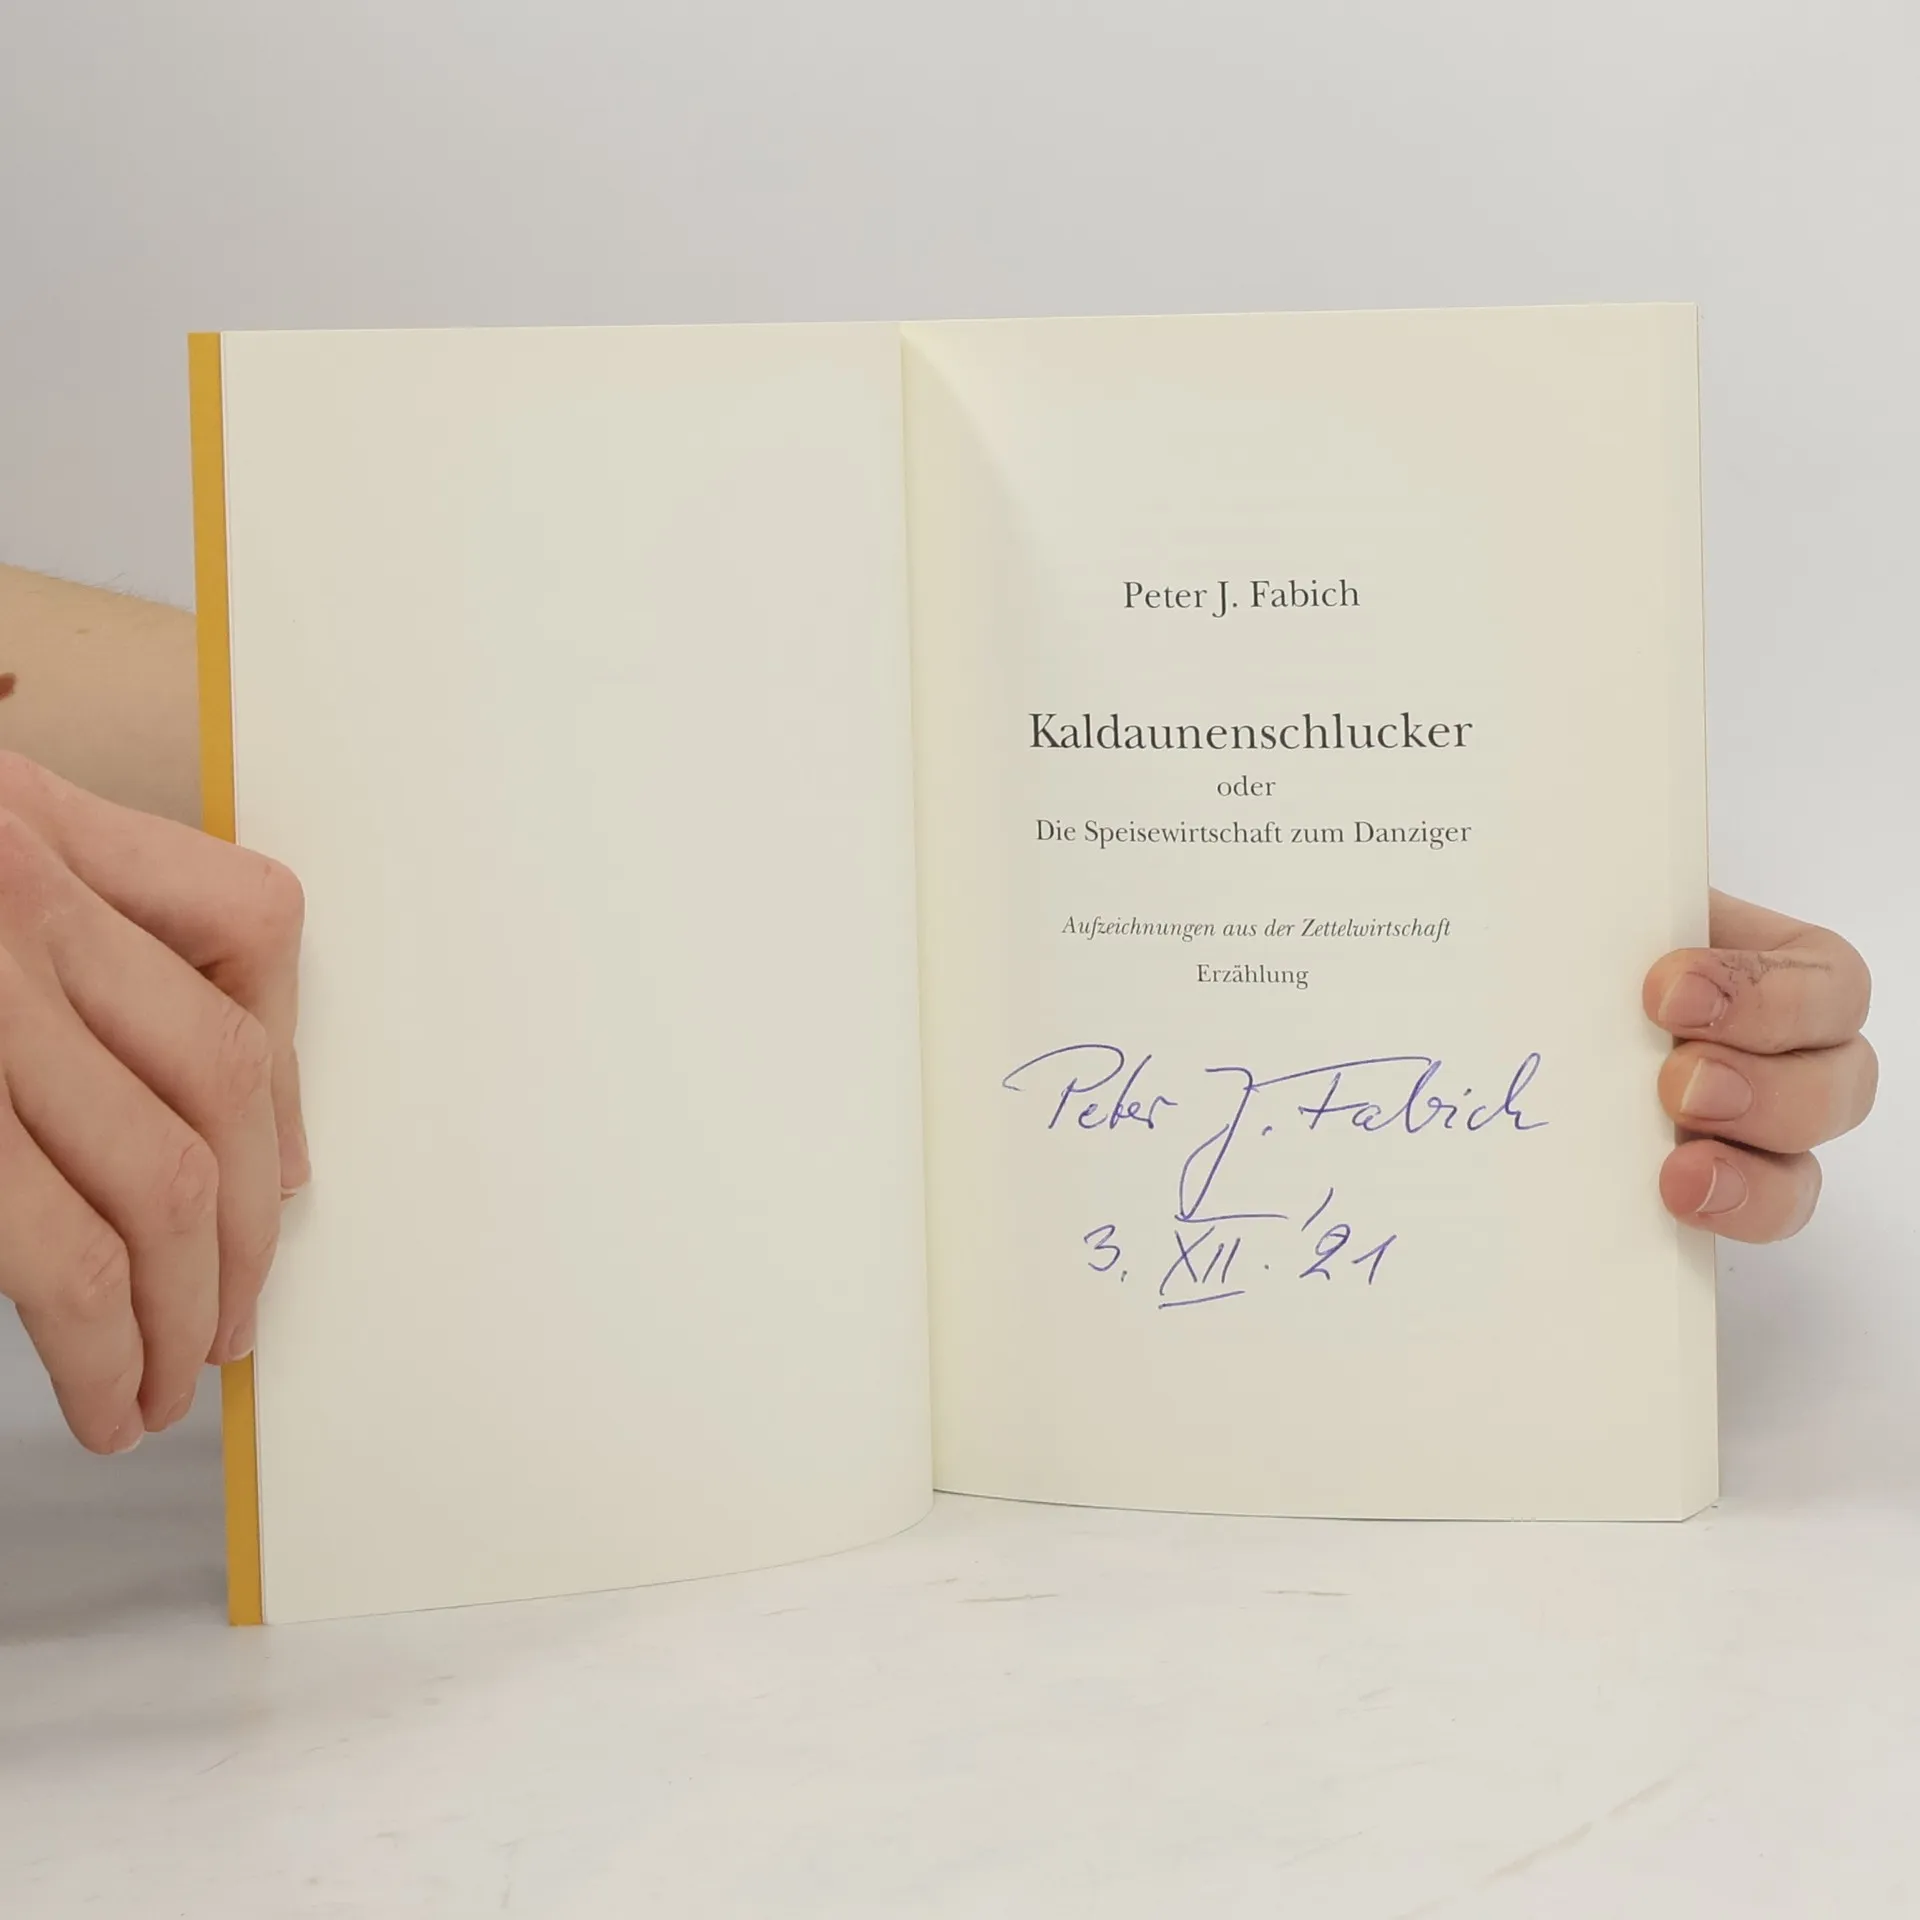 Peter J. Fabich
Kaldaunenschlucker
oder
Die Speisewirtschaft zum Danziger
Aufzeichnungen aus der Zettelwirtschaft
Erzählung
Peter J. Fabich
3. XII. '21